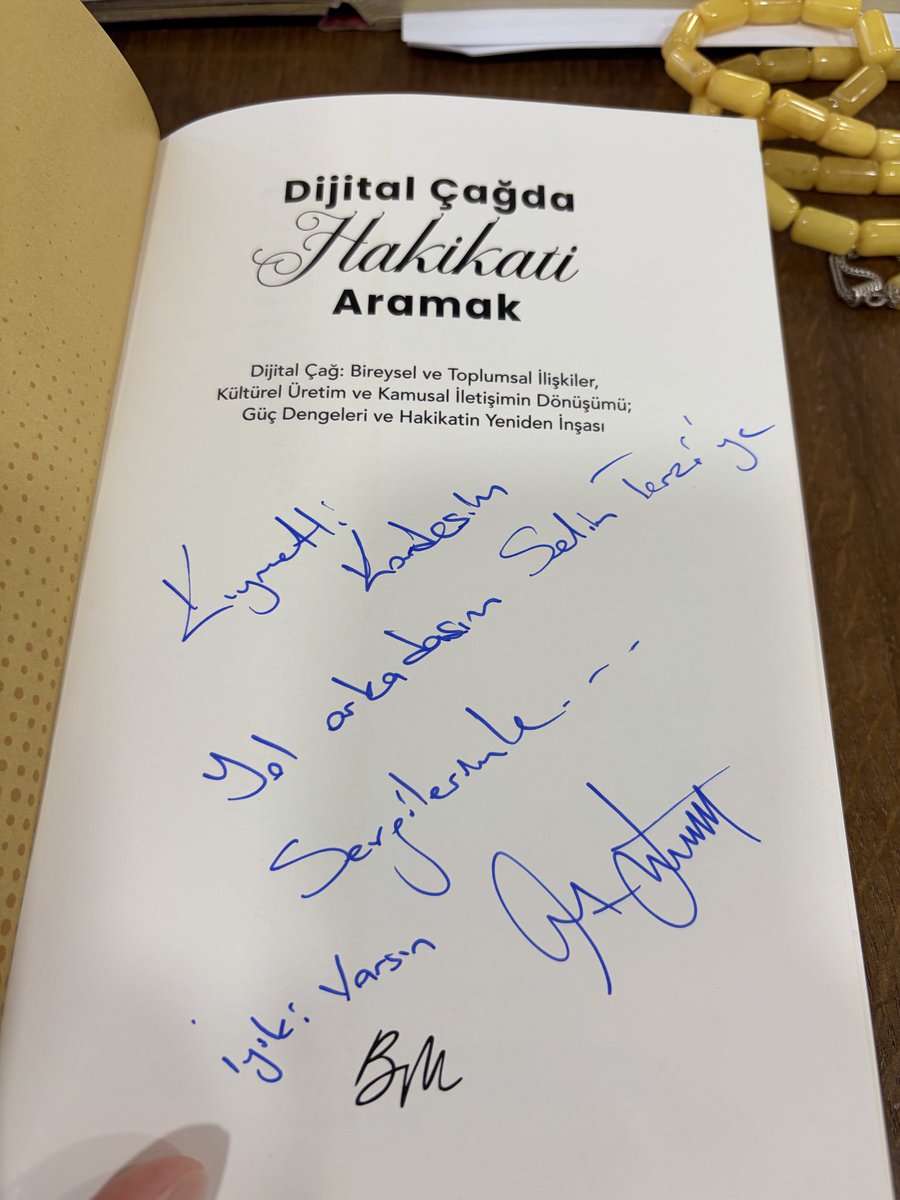 Dijital Çağda
Hakikati
Aramak
Dijital Çağ: Bireysel ve Toplumsal İlişkiler,
Kültürel Üretim ve Kamusal İletişimin Dönüşümü;
Güç Dengeleri ve Hakikatin Yeniden İnşası
Kıymetli Kardeşim
Yol arkadaşım Selim Terzi'ye
Sevgilerimle...
İyiki Varsın
BM